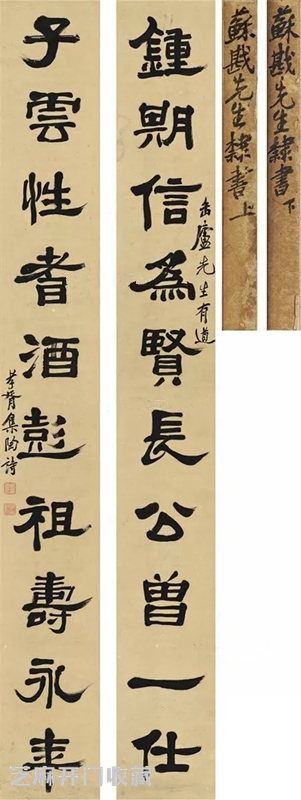 蘇戡先生隸書下
蘇戡先生隸書上
缶廬先生有道
鍾期信為賢長公曾一仕
子雲性耆酒彭祖壽永年
孝胥集陶詩
芝麻开门收藏